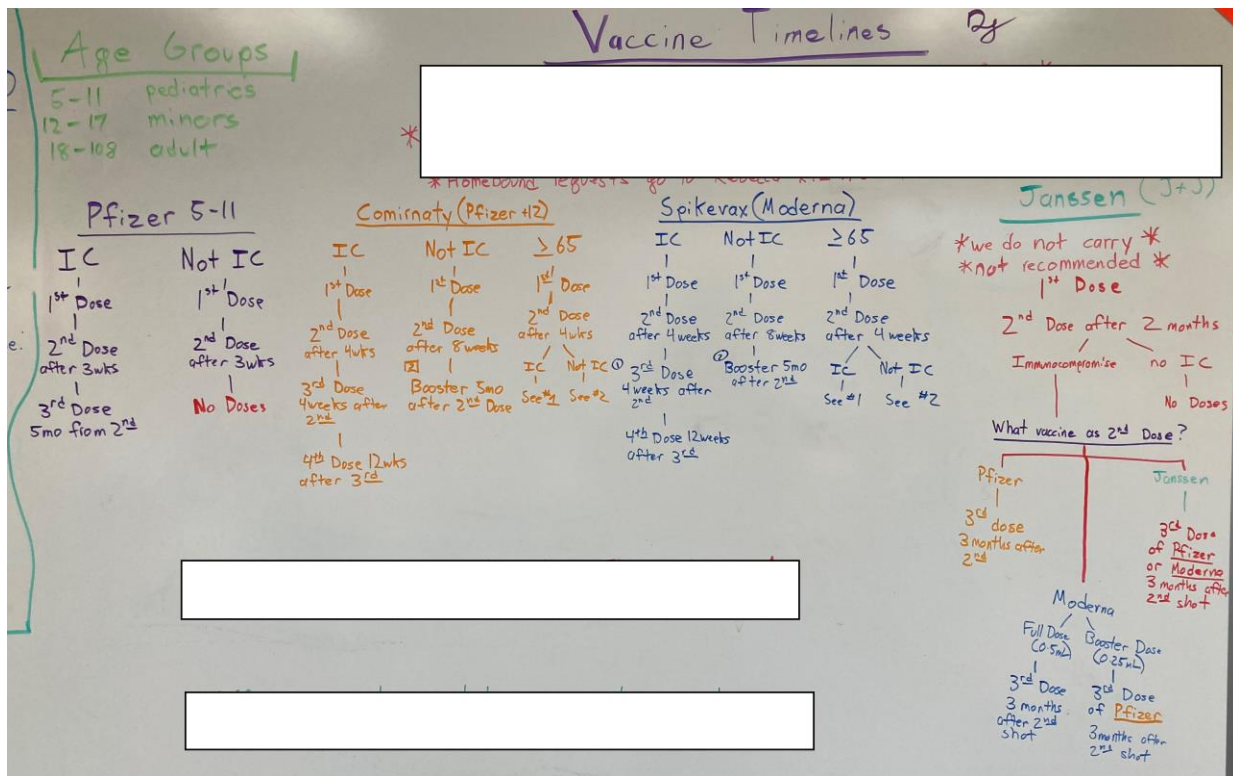 Vaccine Timelines
Age Groups
5-11 pediatrics
12-17 minors
18-108 adult
*
*Homebound requests go to
Pfizer 5-11
IC
1st Dose
2nd Dose
after 3wks
3rd Dose
5mo from 2nd
Not IC
1st Dose
2nd Dose
after 3wks
No Doses
Comirnaty (Pfizer +12)
IC
1st Dose
2nd Dose
after 4wks
3rd Dose
4weeks after
2nd
4th Dose 12wks
after 3rd
Not IC
1st Dose
2nd Dose
after 8weeks
2
Booster 5mo
after 2nd Dose
≥65
1st Dose
2nd Dose
after 4wks
IC
See #1
Not IC
See #2
Spikevax (Moderna)
IC
1st Dose
2nd Dose
after 4weeks
1 3rd Dose
4 weeks after
2nd
4th Dose 12weeks
after 3rd
Not IC
1st Dose
2nd Dose
after 8weeks
2 Booster 5mo
after 2nd
≥65
1st Dose
2nd Dose
after 4 weeks
IC
See #1
Not IC
See #2
Janssen (J+J)
*we do not carry*
*not recommended*
1st Dose
2nd Dose after 2 months
Immunocompromise
no IC
No Doses
What vaccine as 2nd Dose?
Pfizer
3rd dose
3 months after
2nd
Janssen
3rd Dose
of Pfizer
or Moderna
3 months after
2nd shot
Moderna
Full Dose
(0.5mL)
3rd Dose
3 months
after 2nd
shot
Booster Dose
(0.25mL)
3rd Dose
of Pfizer
3months after
2nd shot